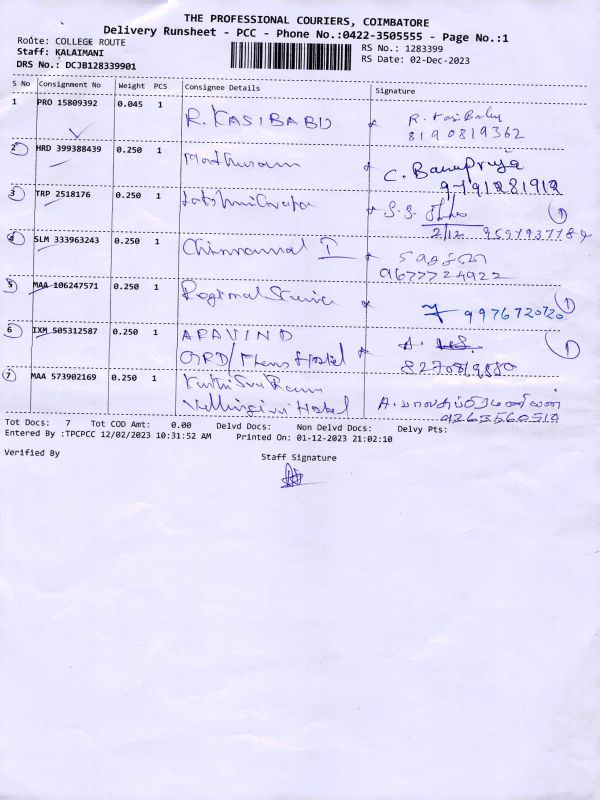 THE PROFESSIONAL COURIERS, COIMBATORE
Delivery Runsheet - PCC - Phone No.:0422-3505555 - Page No.:1
Route: COLLEGE ROUTE
Staff: KALAIMANI
DRS No.: DCJB128339901
RS No.: 1283399
RS Date: 02-Dec-2023
S No Consignment No Weight PCS Consignee Details Signature
1 PRO 15809392 0.045 1 R. KASIBABU R. Kasi Babu
8190819362
2 HRD 399388439 0.250 1 C. Banupriya
9791281912
3 TRP 2518176 0.250 1 S.S.
2/12
4 SLM 333963243 0.250 1 Chinnamal I
9677724922
5 MAA 106247571 0.250 1 Regional 9976720720
6 IXM 505312587 0.250 1 ARAVIND A.
Hostel
7 MAA 573902169 0.250 1 A.
Hotel
Tot Docs: 7 Tot COD Amt: 0.00 Delvd Docs: Non Delvd Docs: Delvy Pts:
Entered By :TPCPCC 12/02/2023 10:31:52 AM Printed On: 01-12-2023 21:02:10
Verified By Staff Signature